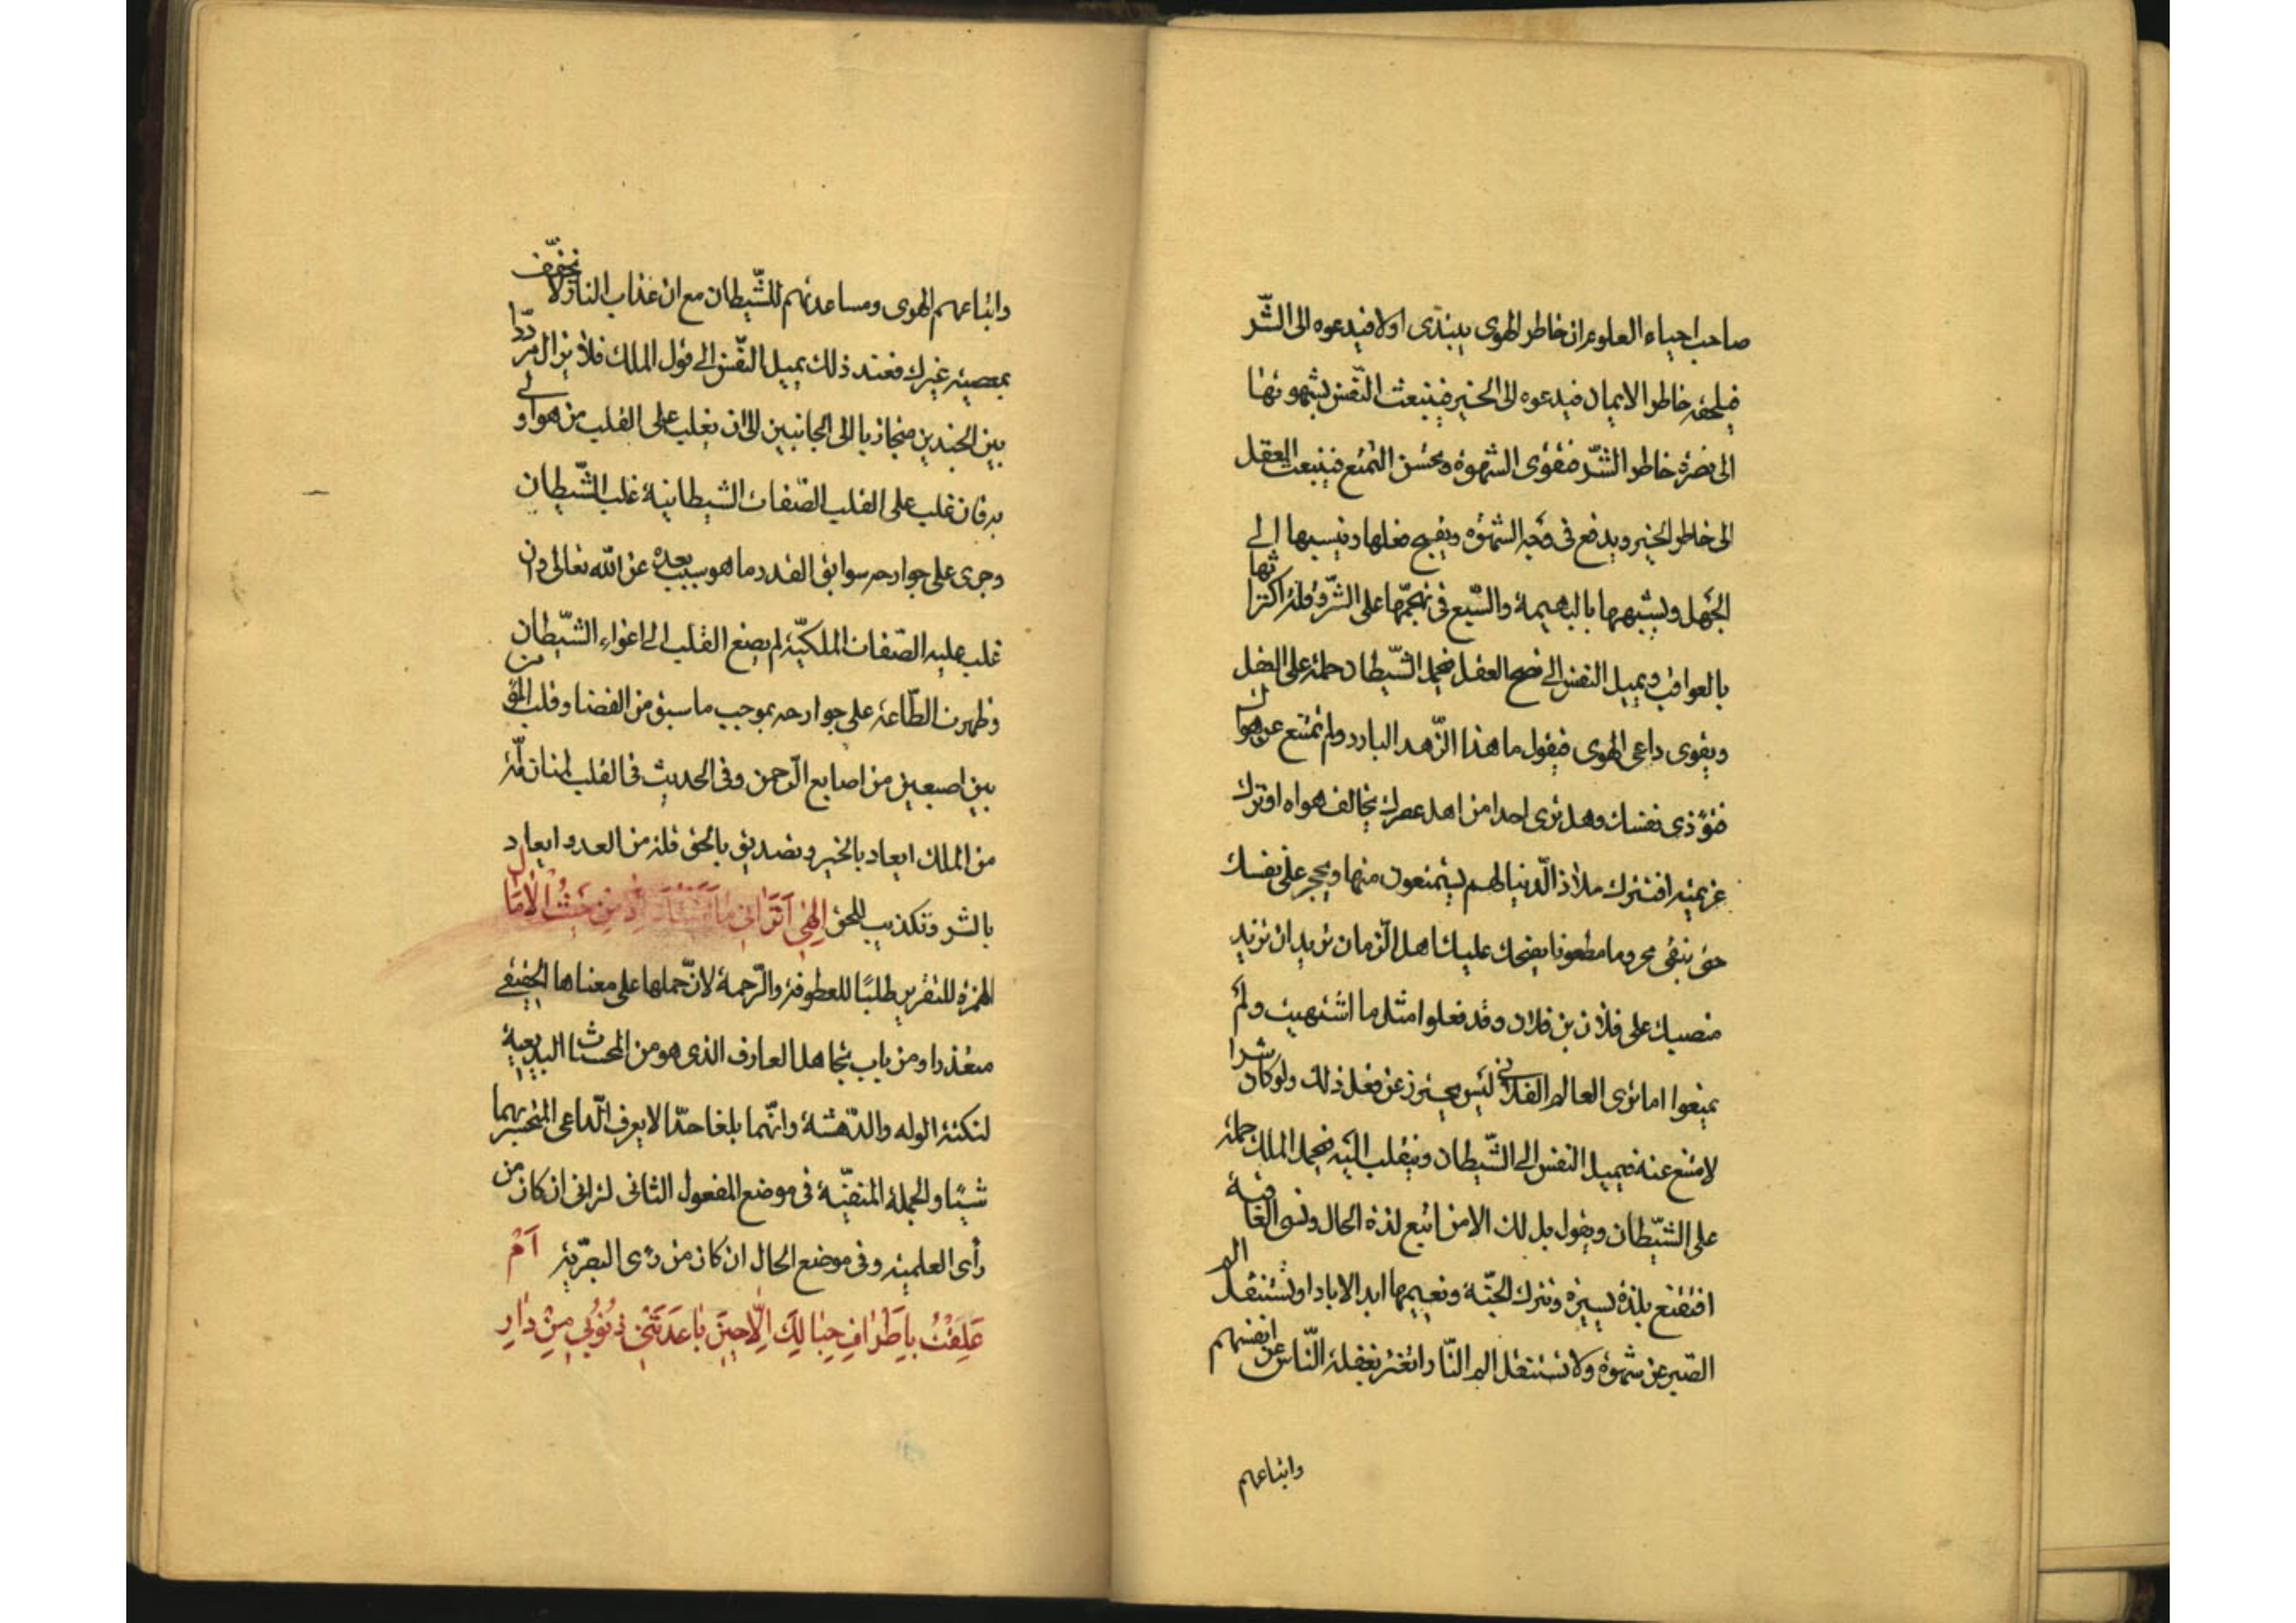 صاحب احياء العلوم ان خاطر الهوى يبتدى اولا فيدعوه الى الشّر
فيلحقه خاطر الايمان فيدعوه الى الخير فينبعث النّفس بشهوتها
الى نصرة خاطر الشّر فيقوى الشهوة ويحسن التمتع فينبعث العقل
الى خاطر الخير ويدفع فى وجه الشهوة ويقبح فعلها وينسبها الى
الجهل ويشبهها بالبهيمة والسّبع فى تهجّمها على الشّر وقلة اكتراثها
بالعواقب ويميل النفس الى نصح العقل فيحمل الشّيطان حملة على العقل
ويقوى داعى الهوى فيقول ما هذا الزّهد البارد ولم تمتنع عن هواك
فتؤذى نفسك وهل ترى احدا من اهل عصرك يخالف هواه او ترك
عزيمته افتترك ملاذ الدّنيا لهم يتمتعون منها ويحجر على نفسك
حتى تبقى محروما مطعونا يضحك عليك اهل الزمان تريد ان تزيد
منصبك على فلان بن فلان وقد فعلوا مثل ما اشتهيت ولم
يمتعوا اما ترى العالم الفلانى ليس يحترز عن فعل ذلك ولو كان شرا
لامتنع عنه فيميل النفس الى الشّيطان وينقلب اليه فيحمل الملك حملة
على الشّيطان ويقول هل لك الا من اتبع لذة الحال ونسى العاقبة
افتقنع بلذة يسيرة وتترك الجنّة ونعيمها ابد الاباد او تستثقل الم
الصّبر عن شهوة ولا تستثقل الم النّار اتغتر بغفلة النّاس عن انفسهم
واتباعهم
واتباعهم الهوى ومساعدتهم للشّيطان مع ان عذاب النار لا تخفّف
بمعصية غيرك فعند ذلك يميل النّفس الى قول الملك فلا يزال مردّدا
بين الجندين متجاذبا الى الجانبين الى ان يغلب على القلب من هو اولى
به فان غلب على القلب الصّفات الشيطانية غلب الشّيطان
وجرى على جوارحه سوابق القدر ما هو سبب بعده عن الله تعالى وان
غلب عليه الصّفات الملكيّة لم يصغ القلب الى اغواء الشّيطان
وظهرت الطّاعة على جوارحه بموجب ما سبق من القضا وقلب المؤمن
بين اصبعين من اصابع الرّحمن وفى الحديث فى القلب لمتان لمّة
من الملك ايعاد بالخير وتصديق بالحق ولمة من العدو ايعاد
بالشر وتكذيب للحق اِلٰهى اَتَرانى ما اَتَيْتُكَ اِلّا مِنْ حَيْثُ الْآمالِ
الهمزة للتقرير طلبًا للعطوفة والرّحمة لانّ حملها على معناها الحقيقى
متعذر او من باب تجاهل العارف الذى هو من المحسنات البديعية
لنكتة الوله والدّهشة وانّهما بلغا حدّا لا يعرف الدّاعى المتحيّر بهما
شيئا والجملة المنفيّة فى موضع المفعول الثانى لترانى ان كان من
رأى العلمية وفى موضع الحال ان كان من رأى البصرّية اَمْ
عَلِقْتُ بِاَطْرافِ حِبالِكَ اِلّا حينَ باعَدَتْنى ذُنُوبى مِنْ دارِ